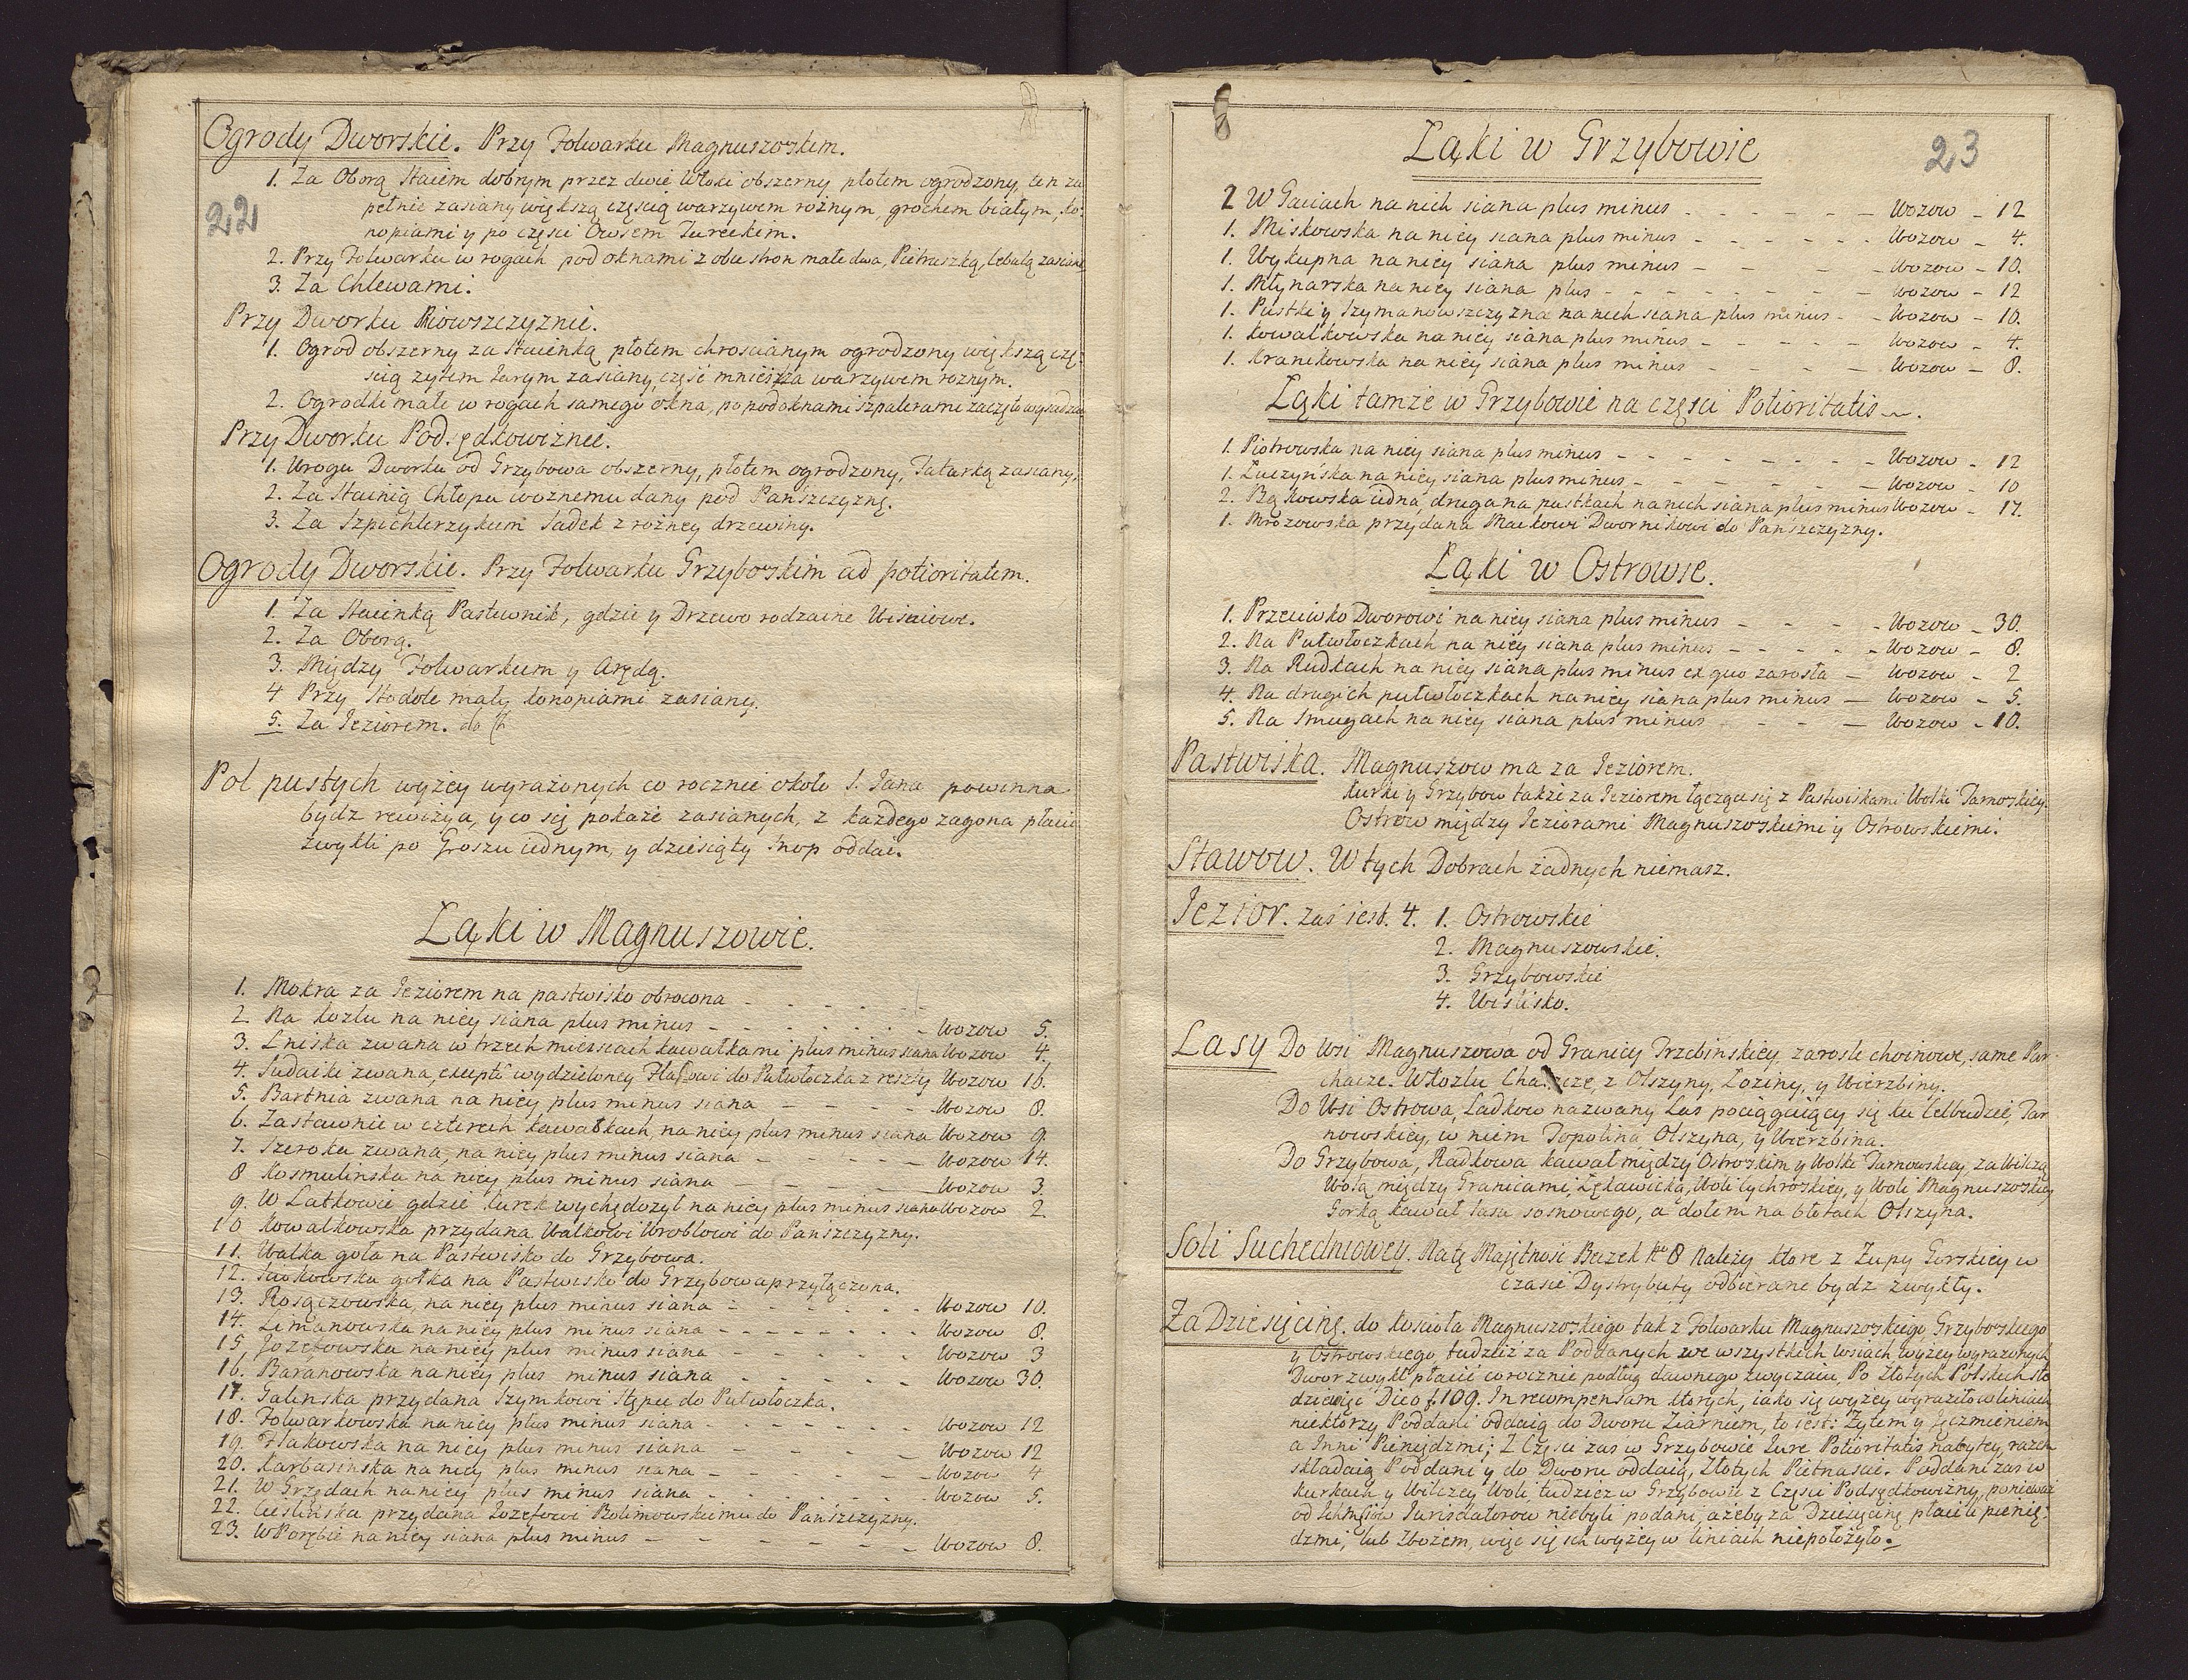 Ogrody Dworskie. Przy Folwarku Magnuszoskim.
1. Za Oborą Staiem dobrym przez dwie Włoki obszerny płotem ogrodzony, ten zu
22
pełnie zasiany większą częscią warzywem rożnym, grochem białym, ko:
nopiami y po częsci Owsem Tureckim.
2. Przy Folwarku w rogach pod oknami z obu stron małe dwa, Pietruszką, Cebulą zasiane
3. Za Chlewami.
Przy Dworku
1. Ogrod obszerny za Stainką płotem chroscianym ogrodzony większą czę:
scią zytem Jarym zasiany, część mnieisza warzywem roznym.
2. Ogrodki małe w rogach samego okna, popod oknami szpalerami zaczęto wysadzac
Przy Dworku Podsędkowiznee.
1. W rogu Dworku od Grzybowa obszerny, płotem ogrodzony, Tatarką zasiany.
2. Za Stainią Chłopu woznemu dany pod Pańszczyznę.
3. Za Szpichlerzykiem Sadek z rożney drzewiny.
Ogrody Dworskie. Przy Folwarku Grzyboskim ad potioritatem.
1. Za Stainką Pastewnik, gdzie y Drzewo rodzaine Wisniowe.
2. Za Oborą.
3. Między Folwarkiem y Arędą.
4 Przy Stodole mały konopiami zasiany.
5. Za Jeziorem.
Pol pustych wyżey wyrażonych co rocznie około S. Jana powinna
bydz rewizya, y co się pokaże zasianych, z każdego zagona płacic
zwykli po Groszu iednym, y dziesiąty Snop oddać.
Łąki w Magnuszowie.
1. Mokra za Jeziorem na pastwisko obrocona
2 Na Kozlu na niey siana plus minus - Wozow 5.
3. Lniska zwana w trzech mieyscach kawałkami plus minus siana Wozow 4.
4. Sudaiki zwana, excepto wydzieloney do Pułwłoczka z reszty Wozow 16.
5. Bartnia zwana na niey plus minus siana - Wozow 8.
6. Zastawnie w czterech kawałkach, na niey plus minus siana Wozow 9.
7. Szeroka zwana, na niey plus minus siana - Wozow 14.
8 Kosmulinska na niey plus minus siana - Wozow 3.
9. W Latkowie gdzie Kurek wychędożył na niey plus minus siana Wozow 2.
10 Kowalkowska przydana Walkowi Wroblowi do Pańszczyzny.
11. Walka goła na Pastwisko do Grzybowa.
12. gołka na Pastwisko do Grzybowa przyłączona.
13. Rosączowska, na niey plus minus siana - Wozow 10.
14. Limanowska na niey plus minus siana - Wozow 8.
15, Jozefowska na niey plus minus siana - Wozow 3
16. Baranowska na niey plus minus siana - Wozow 30.
17. Galinska przydana Szymkowi Stępce do Pułwłoczka.
18. Folwarkowska na niey plus minus siana - Wozow 12
19. Flakowska na niey plus minus siana - Wozow 12
20. Karbasinska na niey plus minus siana - Wozow 4
21. W Grzędach na niey plus minus siana - Wozow 5.
22. Cieslinska przydana Jozefowi Bolimowskiemu do Pańszczyzny.
23. W Porębie na niey siana plus minus - Wozow 8.
Łąki w Grzybowie
23
2 W Gaciach na nich siana plus minus - Wozow - 12
1. Miskowska na niey siana plus minus - Wozow - 4.
1. Wykupna na niey siana plus minus - Wozow - 10.
1. Młynarska na niey siana plus - Wozow - 12
1. Pustki y Szymanowszczyzna na nich siana plus minus - Wozow - 10.
1. Kowalkowska na niey siana plus minus - Wozow - 4.
1. Kranikowska na niey siana plus minus - Wozow - 8.
Łąki tamze w Grzybowie na częsci Potioritatis.
1. Piotrowska na niey siana plus minus - Wozow - 12
1. Łuczyńska na niey siana plus minus - Wozow - 10
2. Bąkowska iedna, druga na pustkach na nich siana plus minus Wozow - 17.
1. Mrozowska przydana Maćkowi Dwornikowi do Pańszczyzny.
Łąki w Ostrowie.
1. Przeciwko Dworowi na niey siana plus minus - Wozow - 30.
2. Na Pułwłoczkach na niey siana plus minus - Wozow - 8.
3. Na Rudkach na niey siana plus minus ex quo zarosła - Wozow - 2
4. Na drugich pułwłoczkach na niey siana plus minus - Wozow - 5.
5. Na Smugach na niey siana plus minus - Wozow - 10.
Pastwiska. Magnuszow ma za Jeziorem.
Kurki y Grzybow także za Jeziorem łączące się z Pastwiskami Wolki Tarnoskiey.
Ostrow między Jeziorami Magnuszoskiemi y Ostrowskiemi.
Stawow. W tych Dobrach żadnych niemasz.
Jezior. zaś iest. 4. 1. Ostrowskie
2. Magnuszowskie.
3. Grzybowskie
4. Wislisko.
Lasy Do Wsi Magnuszowa od Granicy Trzebinskiey zarosle choinowe, same Par:
chacze. W Kozlu z Olszyny, Łoziny, y Wierzbiny.
Do Wsi Ostrowa, Ladkow nazwany Las pociągaiący się ku Celbudzie, Tar
nowskiey, w niem Topolina, Olszyna, y Wierzbina.
Do Grzybowa, Radkowa kawał między Ostroskim y Wolki Tarnowskiey, za Wilczą
Wolą między Granicami, Łękawicką, Woli Cychroskiey, y Woli Magnuszoskiey
Gorką kawał Lasu sosnowego, a dołem na błotach Olszyna.
Soli Suchedniowey. Na tę Majętność Beczek Nro 8 należy ktore z Zupy Gorskiey w
czasie Dystrybuty odbierane bydz zwykły.
Za Dziesięcinę. do Kosciola Magnuszoskiego tak z Folwarku Magnuszoskiego, Grzyboskiego
y Ostrowskiego, tudziez za Poddanych we wszystkich wsiach wyżey wyrazonych
Dwor zwykł płacić corocznie podług dawnego zwyczaiu, Po Złotych Polskich sto
dziewięć Dico f 109. In recompensam ktorych, iako się wyżey wyraziło w liniach
niektorzy Poddani oddaią do Dworu Ziarnem, to iest: Żytem y Jęczmieniem
a Inni Pieniędzmi; Z Częsci zas w Grzybowie Jure Potioritatis nabytey, razem
składaią Poddani y do Dworu oddaią, Złotych Piętnascie. Poddani zas w
Kurkach y Wilczey Woli, tudziez w Grzybowie z Częsci Podsędkowizny, ponieważ
od Ichmciow Jurisdatorow nie byli podani, ażeby za Dziesięcinę płacili pienię:
dzmi, lub Zbożem, więc się ich wyżey w liniach niepołożyło.